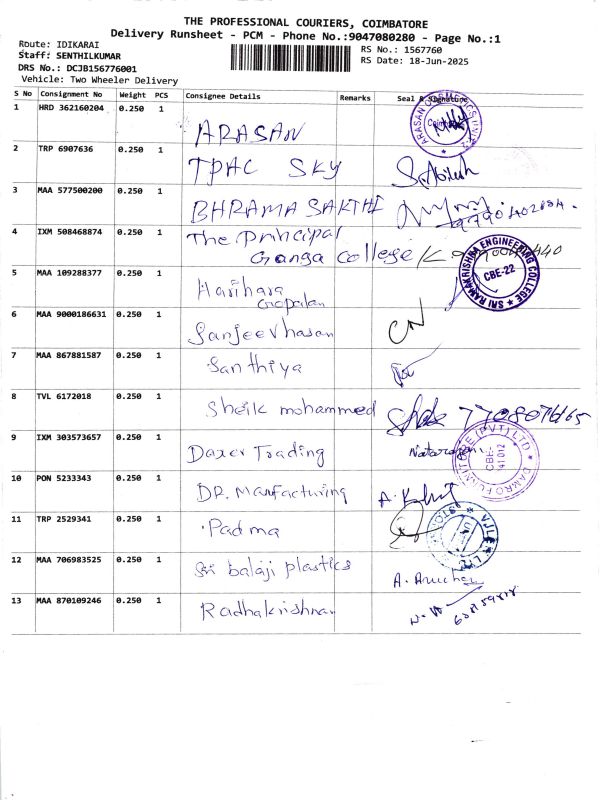 THE PROFESSIONAL COURIERS, COIMBATORE
Delivery Runsheet - PCM - Phone No.:9047080280 - Page No.:1
Route: IDIKARAI
Staff: SENTHILKUMAR
DRS No.: DCJB156776001
Vehicle: Two Wheeler Delivery
RS No.: 1567760
RS Date: 18-Jun-2025
S No Consignment No Weight PCS Consignee Details Remarks Seal & Signature
1 HRD 362160204 0.250 1 ARASAN
2 TRP 6907636 0.250 1 TPAC SKY
3 MAA 577500200 0.250 1 BHRAMA SAKTHI
4 IXM 508468874 0.250 1 The Principal
Ganga College
SRI RAMAKRISHNA ENGINEERING COLLEGE
CBE-22
5 MAA 109288377 0.250 1 Harihara
Gopalan
6 MAA 9000186631 0.250 1 Sanjeevhasan
7 MAA 867881587 0.250 1 Santhiya
8 TVL 6172018 0.250 1 Sheik mohammed
9 IXM 303573657 0.250 1 Daxer Trading Natarajan
10 PON 5233343 0.250 1 DR. Manfacturing
11 TRP 2529341 0.250 1 Padma
12 MAA 706983525 0.250 1 Sri balaji plastics
13 MAA 870109246 0.250 1 Radhakrishnan